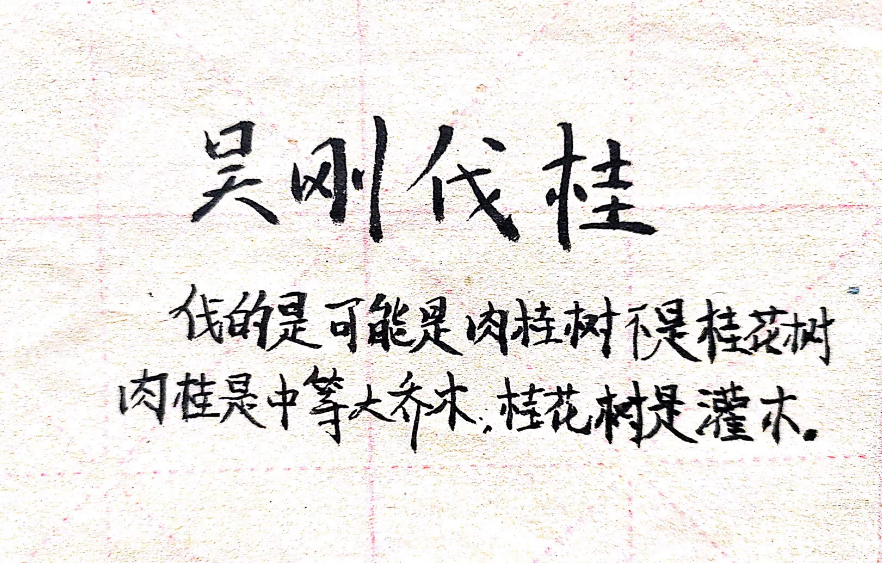 吴刚伐桂
伐的是可能是肉桂树不是桂花树
肉桂是中等大乔木,桂花树是灌木。